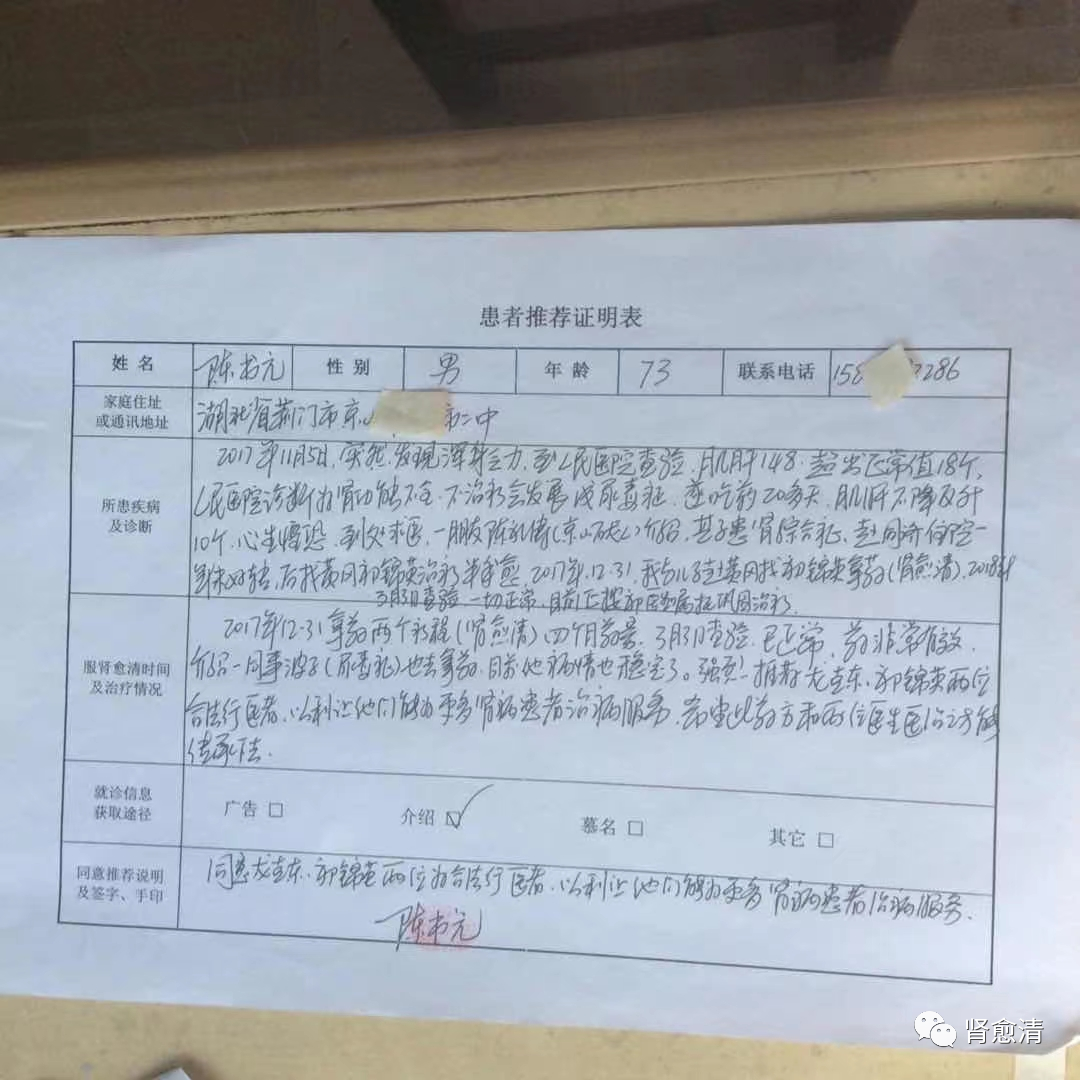 患者推荐证明表
姓名 陈书元 性别 男 年龄 73 联系电话 158 3286
家庭住址
或通讯地址 湖北省荆门市京 市二中
所患疾病
及诊断
2017年11月5日,突然发现浑身乏力,到人民医院查验,肌肝148,超出正常值18个,
人民医院诊断为肾功能不全,不治疗会发展成尿毒症,连吃药20多天,肌肝不降反升
10个,心生惶恐,到处求医,一朋友陈 (京山 )介绍,其子患肾综合症,赴同济住院一
年未好转,后找黄冈郭锦英治疗半年愈,2017年.12.31,我与儿子赴黄冈找郭锦英拿药(肾愈清),2018年
3月3日查验一切正常,目前正按郭医嘱 巩固治疗.
服肾愈清时间
及治疗情况
2017年12.31拿药两个疗程(肾愈清)四个月药量,3月3日查验,已正常,药非常有效,
介绍一同事 (尿毒症)也去拿药,目前他病情也稳定了。强烈推荐龙 东、郭锦英两位
合法行医者,以利让他们能为更多肾病患者治病服务, 此药方和两位医生医治之方能
传承下去.
就诊信息
获取途径 广告 □ 介绍 ☑ 慕名 □ 其它 □
同意推荐说明
及签字、手印 同意龙 东、郭锦英两位为合法行医者,以利让他们能为更多肾病患者治病服务.
陈书元
肾愈清